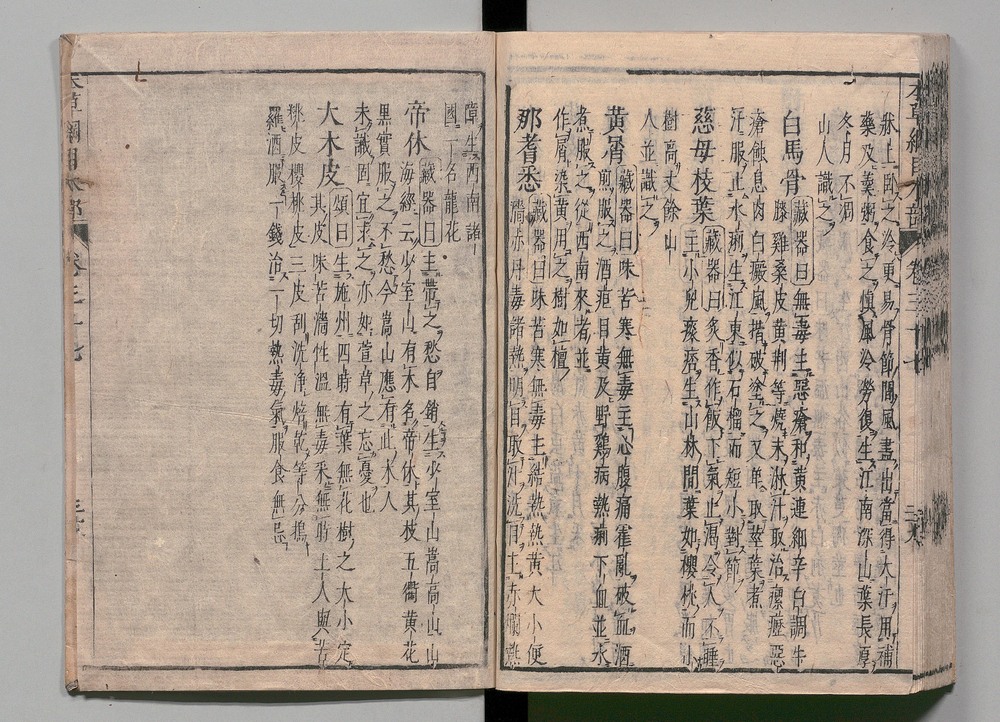 牀上臥之冷更易骨節間風盡出當得大汗用補
藥及羹粥食之慎風冷勞復生江南深山葉長厚
冬月不凋
山人識之
白馬骨藏器曰無毒主惡瘡和黃連細辛白調牛
膝雞桑皮黃荆等燒末淋汁取治瘰癧惡
瘡蝕息肉白癜風揩破塗之又單取莖葉煮
汁服止水痢生江東似石榴而短小對節
慈母枝葉藏器曰炙香作飲下氣止渴令人不睡
主小兒痰痞生山林間葉如櫻桃而小
樹高丈餘山
人並識之
黃屑藏器曰味苦寒無毒主心腹痛霍亂破血酒
煎服之酒疸目黃及野雞病熱痢下血並水
煮服之從西南來者並
作屑染黃用之樹如檀
那耆悉藏器曰味苦寒無毒主結熱熱黃大小便
澀赤丹毒諸熱明目取汁洗目主赤爛熱
障生西南諸
國一名龍花
帝休藏器曰主帶之愁自銷生少室山嵩高山山
海經云少室山有木名帝休其枝五衢黃花
黑實服之不愁今嵩山應有此木人
未識固宜求之亦如萱草之忘憂也
大木皮頌曰生施州四時有葉無花樹之大小定
其皮味苦澀性溫無毒采無時土人與苦
桃皮櫻桃皮三皮刮洗淨焙乾等分搗
羅酒服一錢治一切熱毒氣服食無忌
本草綱目木部 卷三十七